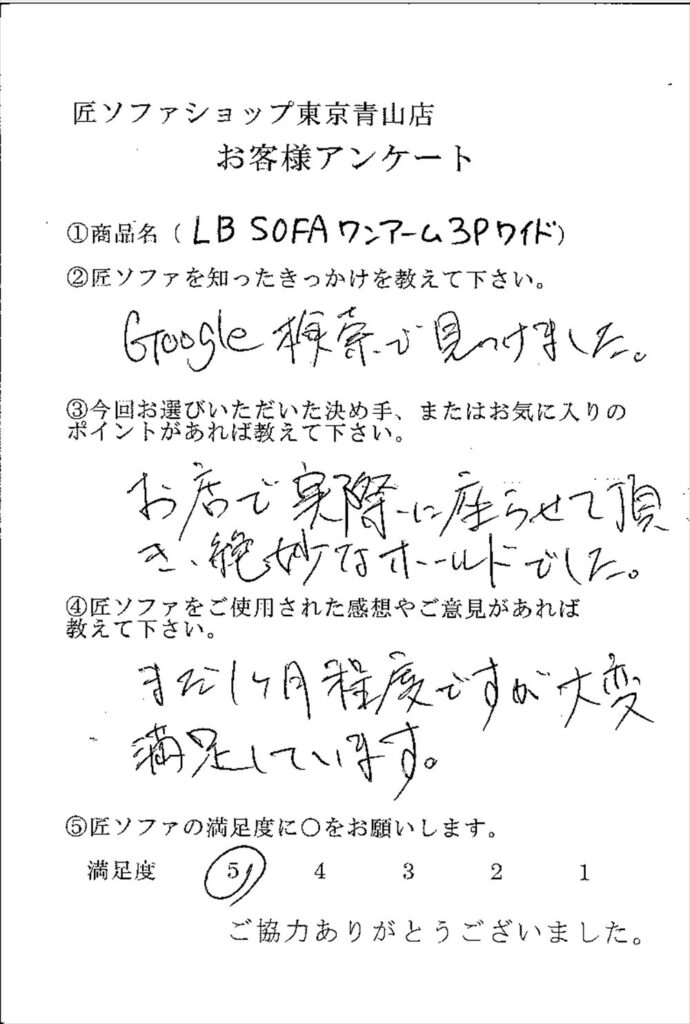 匠ソファショップ東京青山店
お客様アンケート
①商品名（LB SOFA ワンアーム3Pワイド）
②匠ソファを知ったきっかけを教えて下さい。
Google 検索で見つけました。
③今回お選びいただいた決め手、またはお気に入りの
ポイントがあれば教えて下さい。
お店で実際に座らせて頂
き、絶妙なホールドでした。
④匠ソファをご使用された感想やご意見があれば
教えて下さい。
まだ1ヶ月程度ですが大変
満足しています。
⑤匠ソファの満足度に○をお願いします。
満足度 5 4 3 2 1
ご協力ありがとうございました。